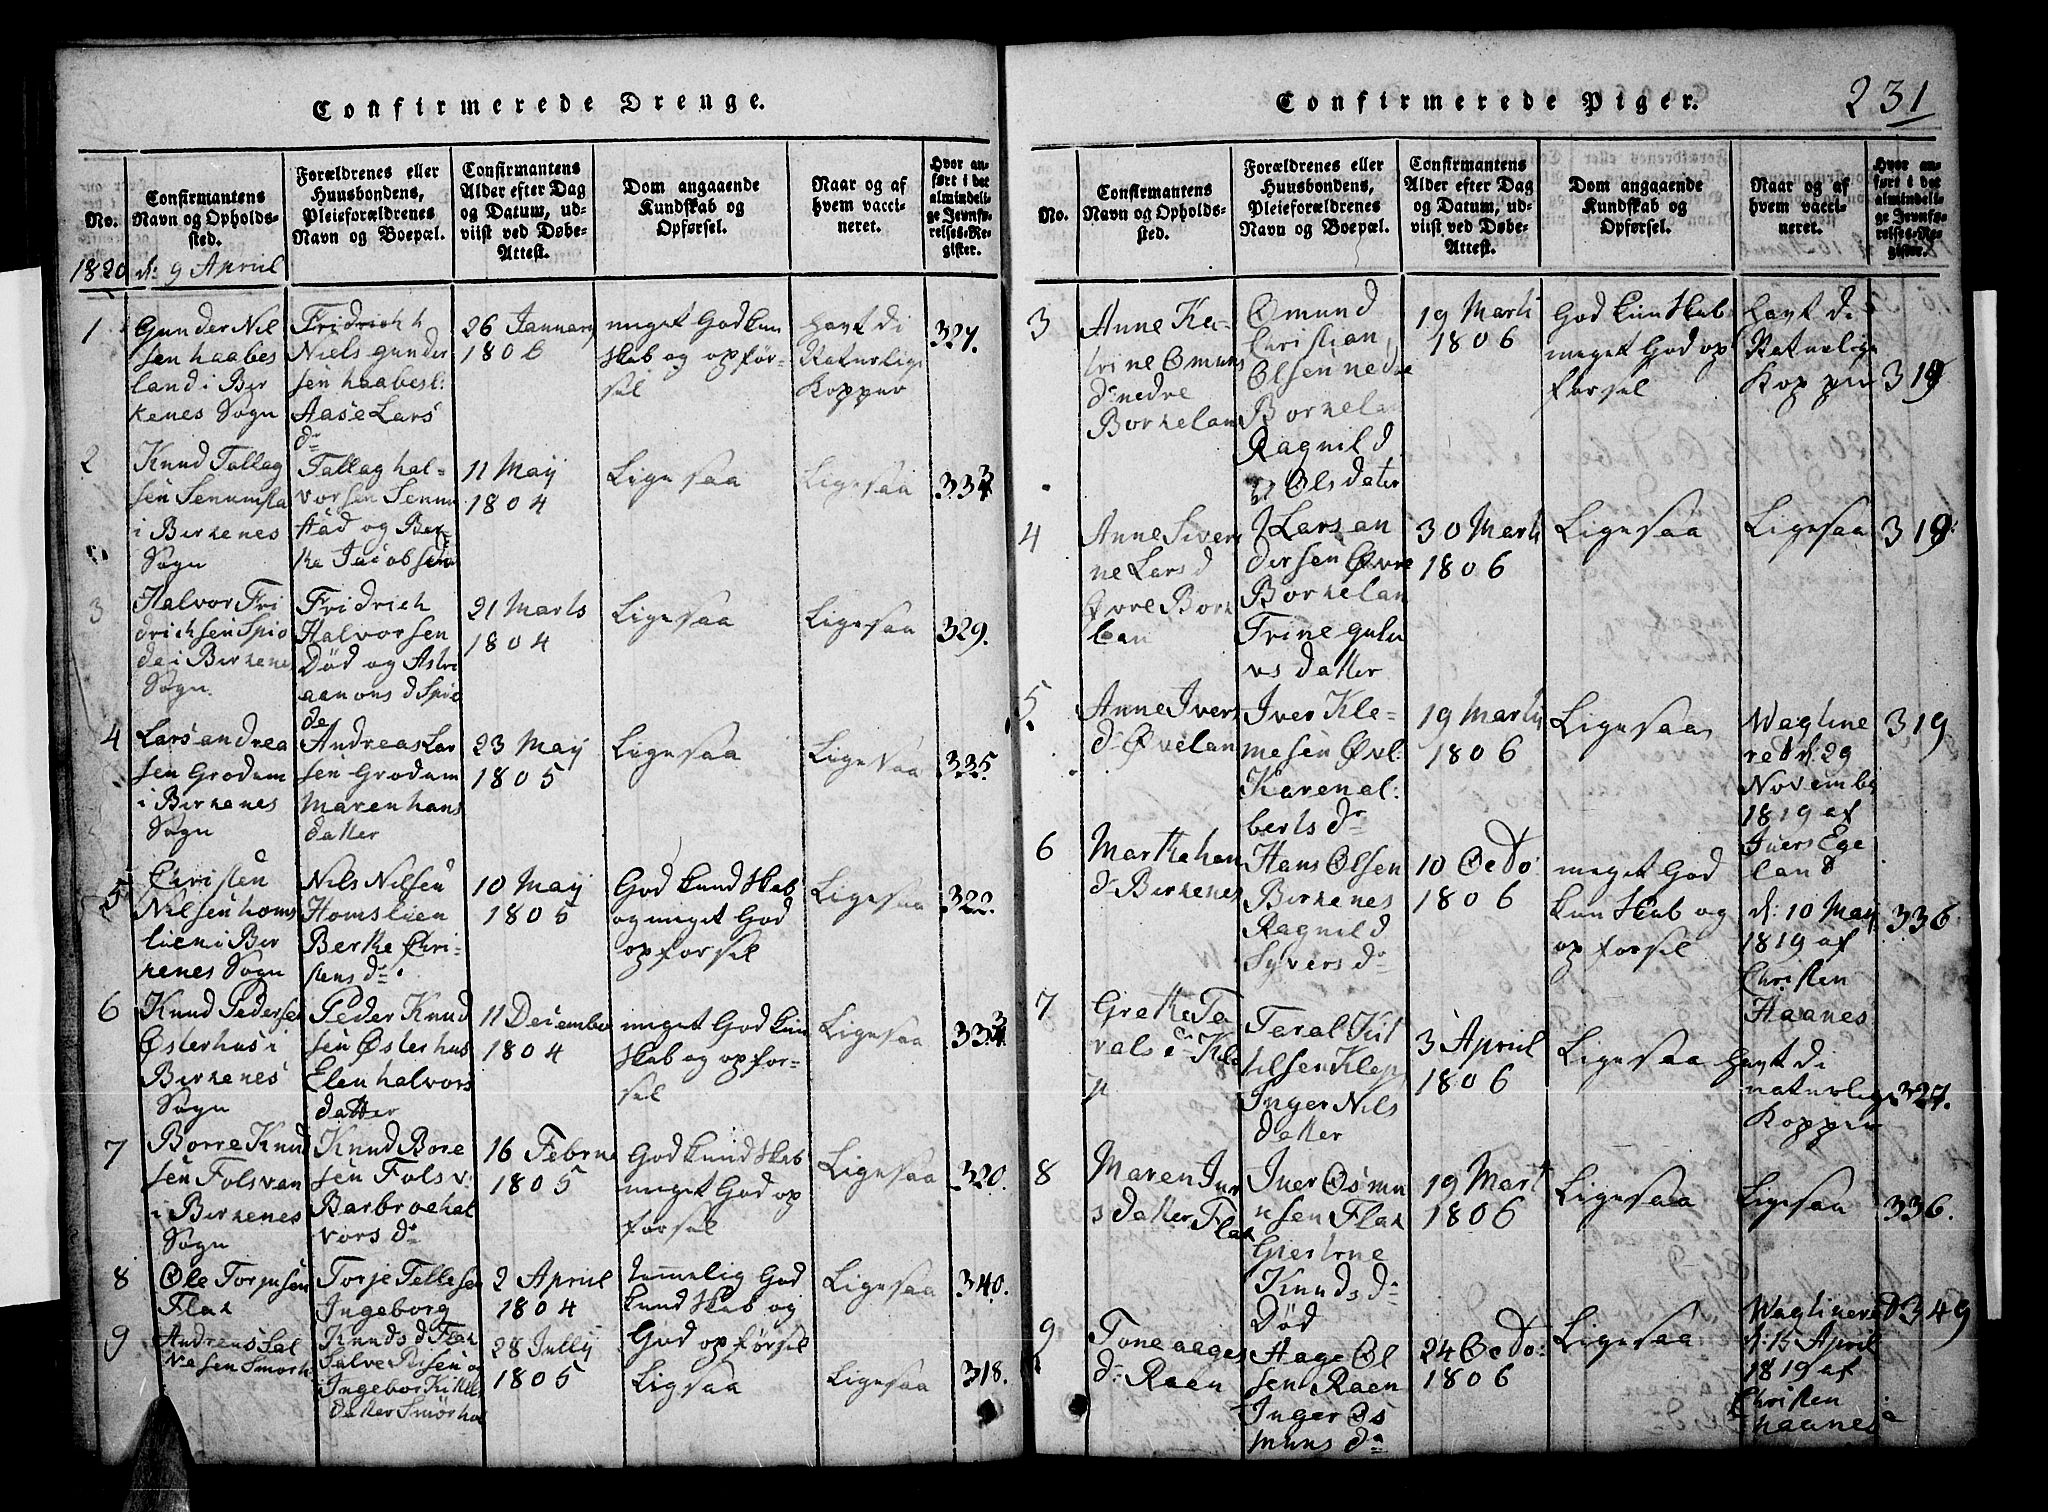 Confirmerede Drenge.
No.
Confirmantens
Navn og Opholds-
sted.
Forældrenes eller
Huusbondens,
Pleieforældrenes
Navn og Boepæl.
Confirmantens
Alder efter Dag
og Datum, ud-
viist ved Døbe-
Attest.
Dom angaaende
Kundskab og
Opførsel.
Naar og af
hvem vacci-
neret.
Hvor an-
ført i det
almindeli-
ge Jevnfø-
relses-Re-
gister.
1820 d: 9 April
1
Gunder Nil
sen haabes
land i Bir
kenes Sogn
Fridrich h
Niels gunder
sen haabesl:
Aase Lars
dr
26 January
1806
meget God kun
skab og opfør-
sel
havt di
Naturlige
Kopper
327.
2
Knud Tallag
sen Senumsta
i Birkenes
Sogn
Tallag hal-
vorsen Senum
stad og Ber-
the Jacobsen
11 May
1804
Ligesaa
Ligesaa
3
Halvor Fri
drichsen Spio
de i Birkene
Sogn
Fridrich
Halvorsen
Død og Astri
aanons d Spio
de
21 Marts
1804
Ligesaa
Ligesaa
329.
4
Lars andrea
sen Grodum
i Birkenes
Sogn
Andreas Lar
sen Grodum
Maren hans
datter
23 May
1805
Ligesaa
Ligesaa
335.
5
Christen
Nilsen homs
lien i Bir
kenes Sogn
Nils Nilsen
Homslien
Berthe Chri-
stens dr
10 May
1805
God kundskab
og meget God
opforsel
Ligesaa
322.
6
Knud Pedersen
Østerhus i
Birkenes
Sogn
Peder Knud
sen Østerhus
Elen halvors
datter
11 December
1804
meget God kun
skab og opfor-
sel
Ligesaa
7
Borre Knud
sen Folsvan
i Birkenes
Sogn
Knud Bore
sen Folsv:
Barbroe hal
vors dr
16 Februa
1805
God kundskab
meget God op
forsel
Ligesaa
320.
8
Ole Torjusen
Flak
Torje Tellesen
Ingeborg
Knuds d Flak
2 April
1804
temmelig God
kundskab og
God opførsel
Ligesaa
340.
9
Andreas Sal
vesen Smørh
Salve Persen og
Ingebor Kittels
datter Smørhol
28 Jully
1805
Ligsaa
Ligesaa
318.
Confirmerede Piger.
231
No.
Confirmantens
Navn og Opholds-
sted.
Forældrenes eller
Huusbondens,
Pleieforældrenes
Navn og Boepæl.
Confirmantens
Alder efter Dag
og Datum, ud-
viist ved Døbe-
Attest.
Dom angaaende
Kundskab og
Opførsel.
Naar og af
hvem vacci-
neret.
Hvor an-
ført i det
almindeli-
ge Jevnfø-
relses-Re-
gister.
3
Anne Ka-
trine Omuns
dr nedre
Borkelan
Omund
Christian
Olsen nedre
Borkelan
Ragnild
Olsdater
19 Marti
1806
God kunskab
meget God op
forsel
havt di
Natnelige
Kopper
319
4
Anne Siver
ne Lars d
Øvre Bork
lan
Lars an
dersen Øvre
Borkelan
Trine gulu
vs datter
30 Marti
1806
Ligesaa
Ligesaa
319.
5.
Anne Ivers
dr Øvelan
Iver Kle-
mesen Øvl
Karen al:
berts dr
19 Marty
1806
Ligesaa
Wagtine
red d: 29
Novembe
1819 af
Juers Ege
land
319
6
Marthe han
dr Birkenes
Hans Olsen
Birkenes
Ragnild
Syvers dr
10 Octo:
1806
meget God
kunskab og
opforsel
d: 10 May
1819 af
Christen
Haanes
336.
7
Grethe Ta
rals dr Kle
p
Taral Kit
tilsen Klep
Inger Nils
datter
3 April
1806
Ligesaa
havt di
naturlige
Kopper
327.
8
Maren Jur
s datter Flak
Juer Osmu
nsen Flak
Giertrue
Knuds dr
Død
19 Mart
1806
Ligesaa
Ligesaa
336.
9
Tone aages
dr Raen
Aage Ol
sen Raen
Inger Os
muns da
24 Octo:
1806
Ligesaa
Wagtinered
d: 15 April
1819 af
Christen
Haanes
349